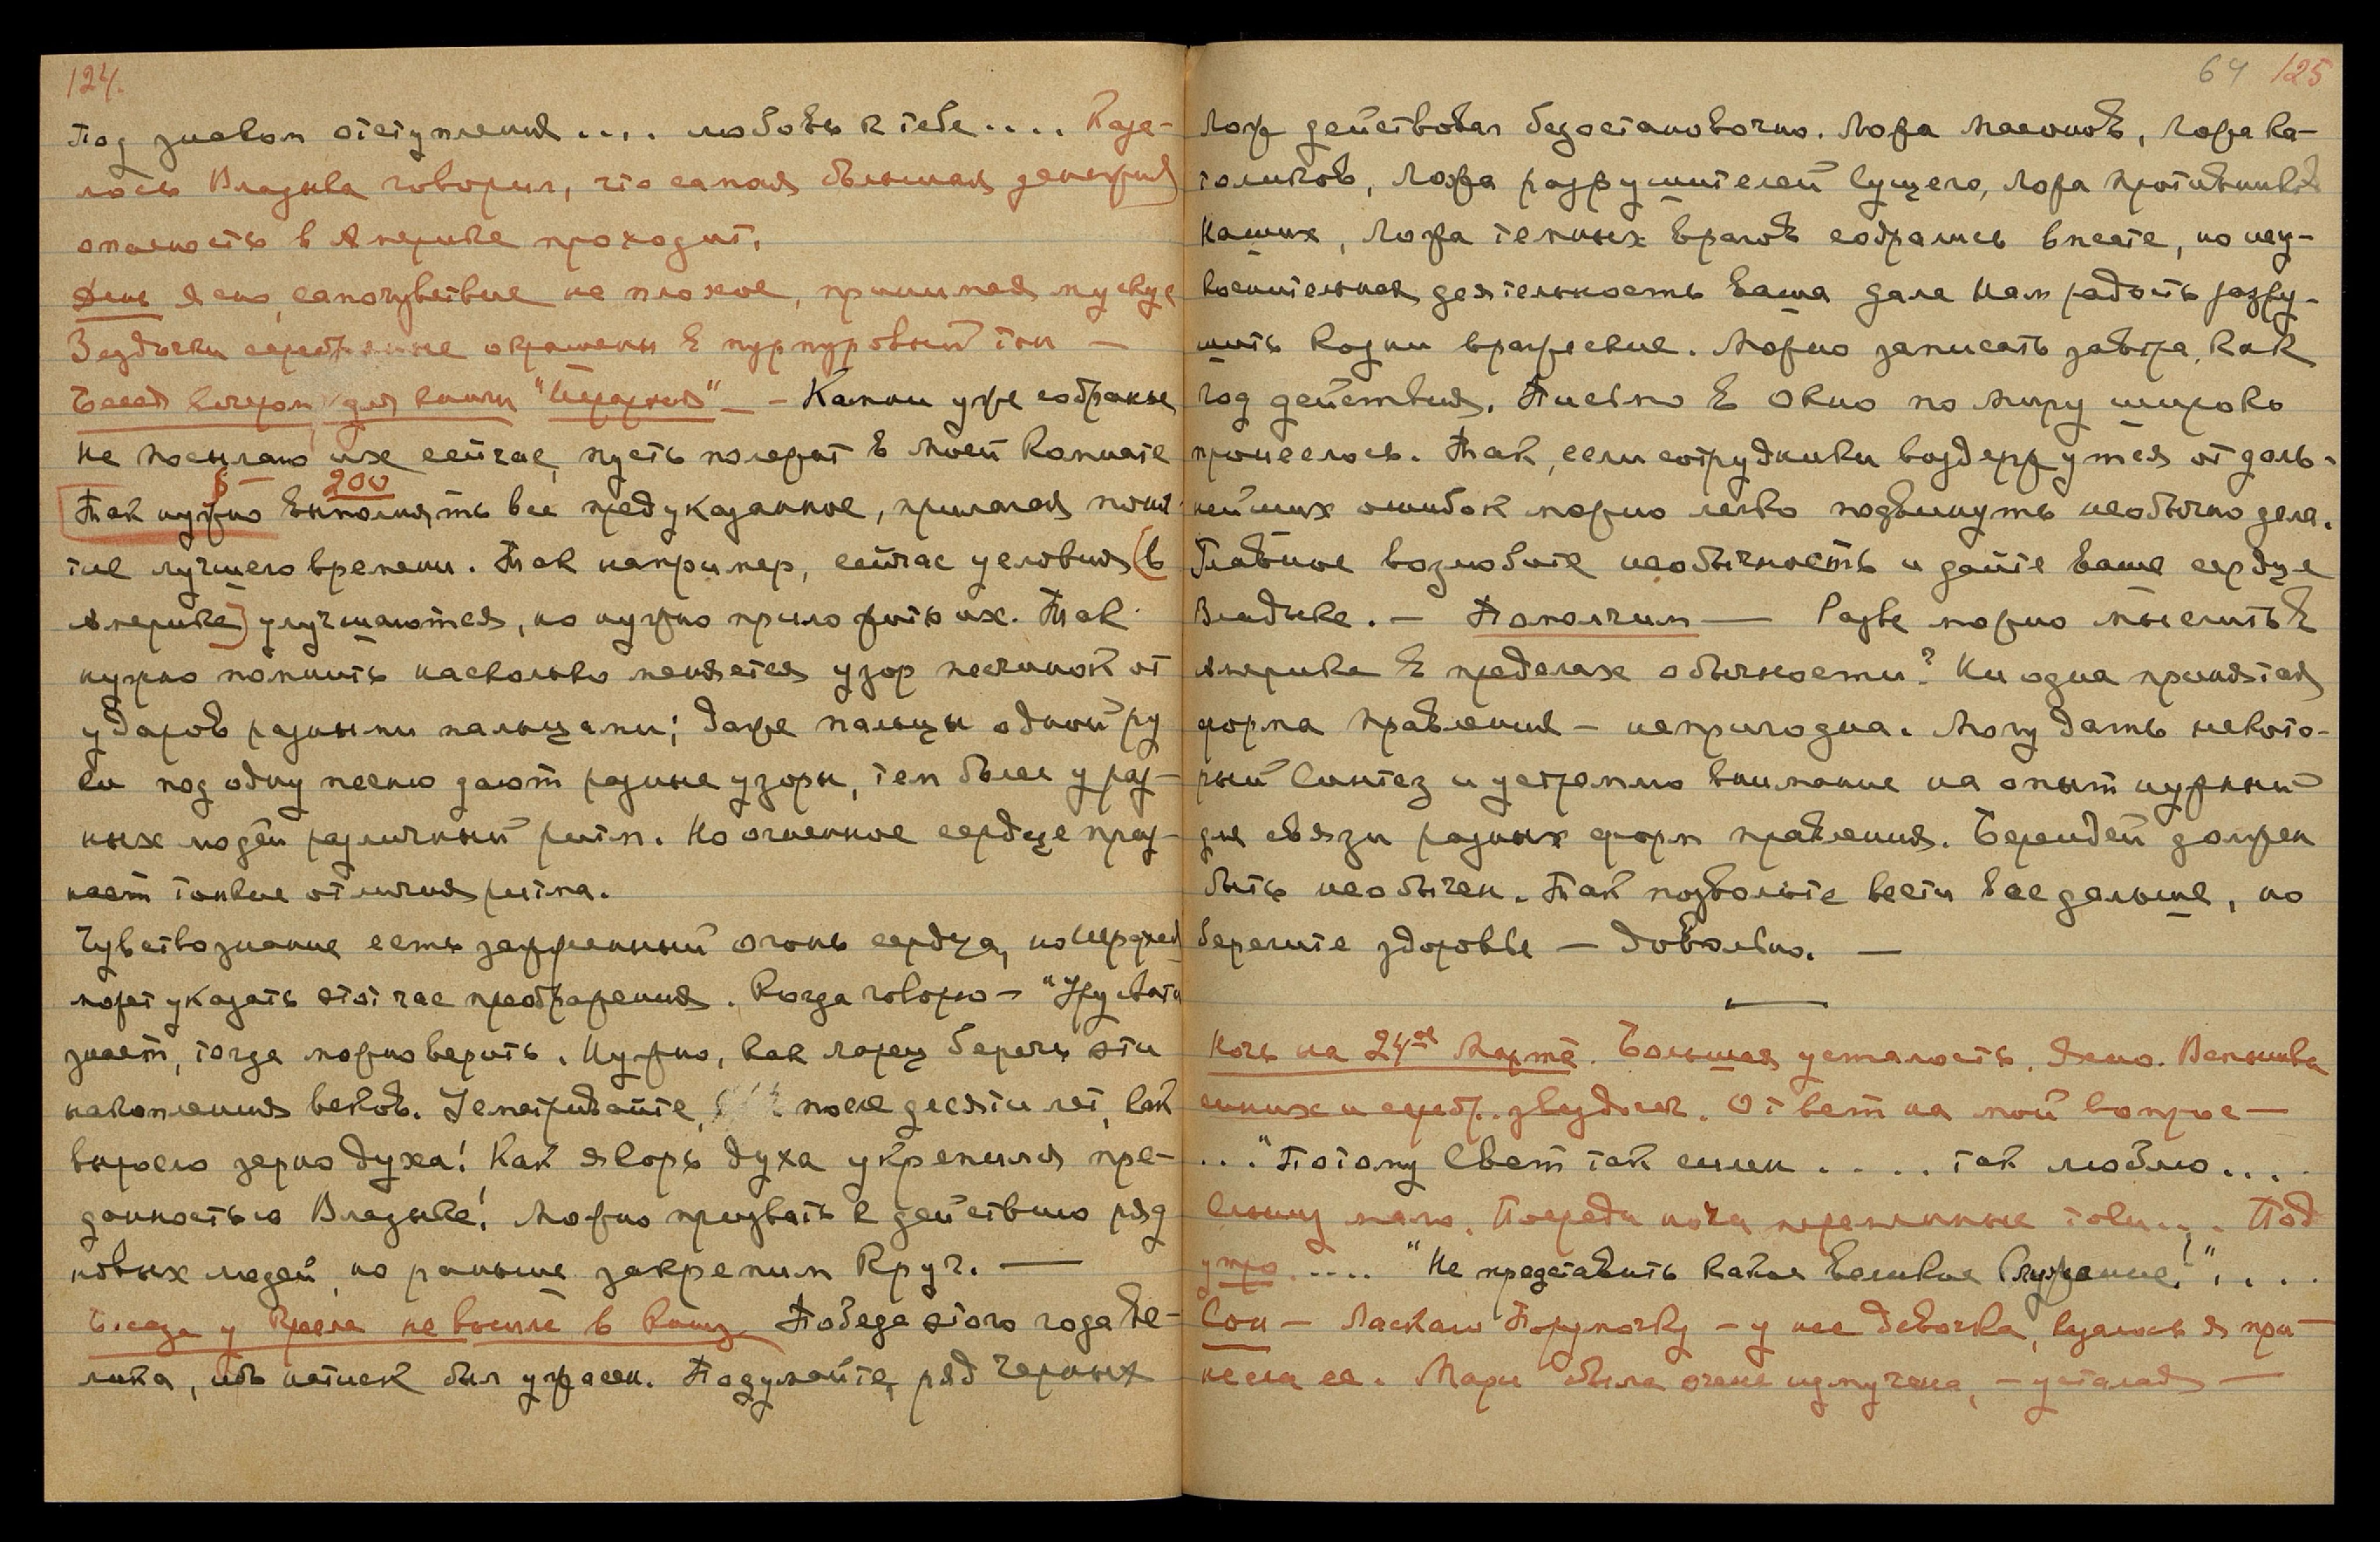 124.
Под знаком отступления.... любовь к тебе.... Каза-
лось Владыка говорил, что самая большая денежная
опасность в Америке проходит.
День ясно, самочувствие не плохое, принимая мускус
Звездочки серебряные окрашены в пурпуровый тон —
Беседа вечером для книги "Иерархия" — - Камни уже собраны
не посылаю их сейчас, пусть полежат в Моей комнате
§ — 200
Так нужно выполнять все предуказанное, прилагая поня-
тие лучшего времени. Так например, сейчас условия (в
Америке) улучшаются, но нужно приложить их. Так
нужно помнить насколько меняется узор песчинок от
ударов разными пальцами; даже пальцы одной ру
ки под одну песню дают разные узоры, тем более у раз-
ных людей различный ритм. Но огненное сердце приз-
нает тонкие отличия ритма.
Чувствознание есть зажженный огонь сердца, но Иерархия
может указать этот час преображения. Когда говорю — "Урусвати
знает, тогда можно верить. Нужно, как ларец беречь эти
накопления веков. Усматривайте, после десяти лет, как
выросло зерно духа! Как якорь духа укрепился пре-
данностью Владыке! Можно призвать к действию ряд
новых людей, но раньше закрепим Круг. —
Беседа у Кресла не вошло в Книгу Победа этого года ве-
лика, ибо натиск был ужасен. Подумайте, ряд черных
64 125
Лож действовал безостановочно. Ложа масонов, Ложа ка-
толиков, Ложа разрушителей Сущего, Ложа противников
Наших, Ложа темных врагов собрались вместе, но неу-
коснительная деятельность ваша дала Нам радость разру-
шить козни вражеские. Можно записать завтра, как
год действия. Письмо в окно по миру широко
пронеслось. Так, если сотрудники воздержутся от даль-
нейших ошибок можно легко подвинуть необычно дела.
Главное возлюбите необычность и дайте ваше сердце
Владыке. — Помолчим — Разве можно мыслить в
Америке в пределах обычности? Ни одна принятая
форма правления — непригодна. Могу дать некото-
рый Синтез и устремлю внимание на опыт нужный
для связи разных форм правления. Берендей должен
быть необычен. Так позвольте вести все дальше, но
берегите здоровье — Довольно. —
Ночь на 24ое Марта. Большая усталость. Ясно. Вспышки
синих и серебр. звездочек. Ответ на мой вопрос —
..."Потому Свет так силен.... так люблю....
Слышу мало. Посреди ночи переменные токи... Под
утро ..... "Не представить какое Великое Служение!"....
Сон — Ласкаю Порумочку — у нее девочка, казалось я при-
несла ее. Мари была очень измучена, — усталая —